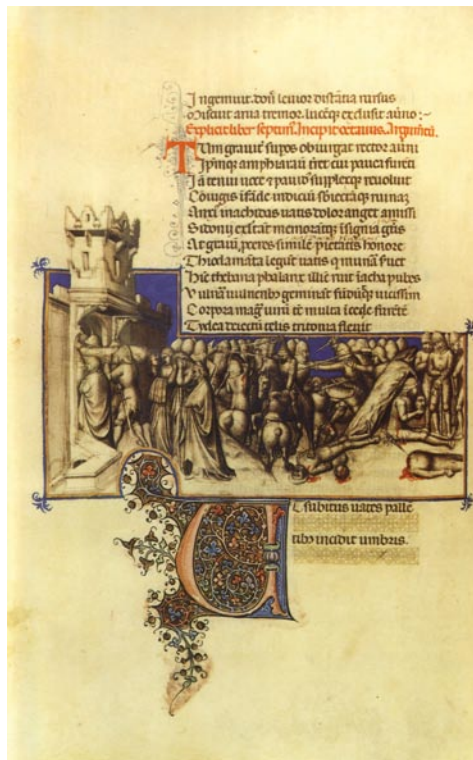 Ingemuit. don̄ leuior distātia rursus
Miscuit arua tremor. lucēq; exclusit auno
Explicit liber septim'. Incipit octauus. Argumētū.
Tum grauit' supos obiurgat rector auni
Ipmq; amphiaraū cui pauca furēti
Iā tenui uoce & pauid' supplexq; reuoluit
Cōiugis iudiciū ruinaȝ
inachidas uatis dolor anget amissi
Sidonii exstāt memorātq; īsignia
At graui' pceres simile pietatis honore
Thiodamāta legūt uatis q munia
Hīc thebana phalanx illīc ruit iacha pubes
Vulna uulnerib; gemināt fūdūtq; uicissim
Corpora uirū tē multa ī cede furētē
Tydea deiectū telis tritonia fleuit
Ut subitus uates palle
tib; incidit umbris.